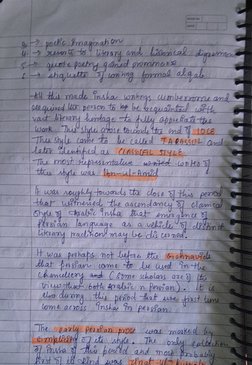 → poetic Imagination
→ resort to literary and historical digression
→ quote poetry gained prominence
→ etiquette of using formal alqab
All this made insha writings cumbersome and
required the person to be acquainted with
vast literary heritage to fully appreciate the
work. This style came towards the end of 10CE
This style came to be called
later identified as CLASSICAL STYLE
The most representative works of
this style was
It was roughly towards the close of this period
that witnessed the ascendancy of classical
style of Arabic insha that emergence of
Persian language as a vehicle of distinct
literary tradition may be discerned.
It was perhaps not before the Ghaznavids
that Persian came to be used in the
chancellery and (some scholar are of the
view that both Arabic & Persian). It is
also during this period that we first time
come across Insha in persian.
The early persian prose was marked by
simplicity of its style. The only collection
of insha of this period and most probably
first of its kind was